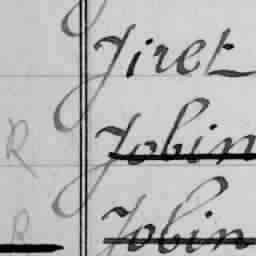 Jiret
R Jobin
R Jobin